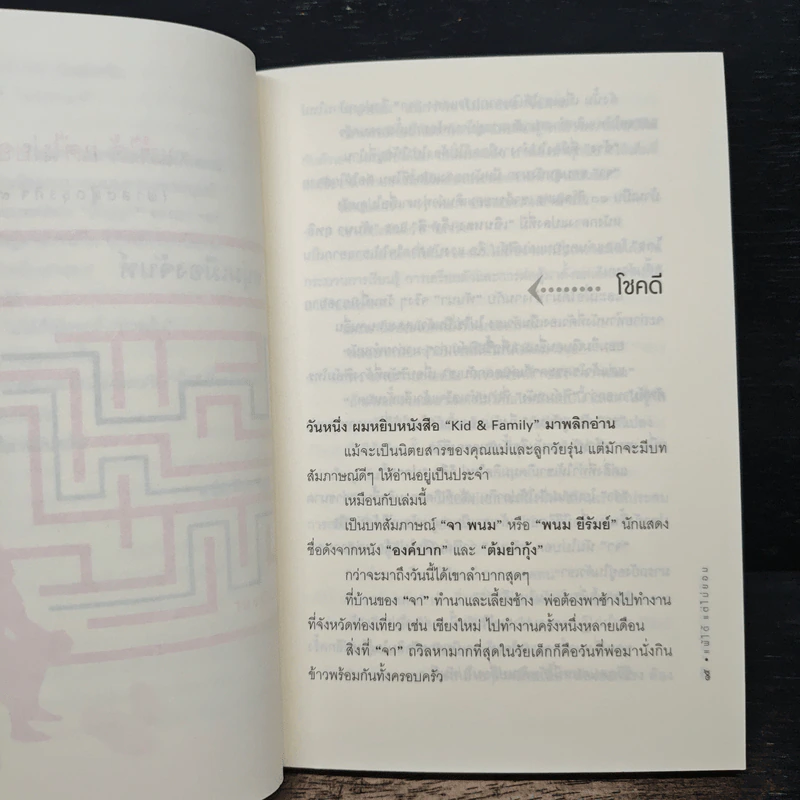 โชคดี
วันหนึ่ง ผมหยิบหนังสือ “Kid & Family” มาพลิกอ่าน
แม้จะเป็นนิตยสารของคุณแม่และลูกวัยรุ่น แต่มักจะมีบท
สัมภาษณ์ดีๆ ให้อ่านอยู่เป็นประจำ
เหมือนกับเล่มนี้
เป็นบทสัมภาษณ์ “จา พนม” หรือ “พนม ยีรัมย์” นักแสดง
ชื่อดังจากหนัง “องค์บาก” และ “ต้มยำกุ้ง”
กว่าจะมาถึงวันนี้ได้เขาลำบากสุดๆ
ที่บ้านของ “จา” ทำนาและเลี้ยงช้าง พ่อต้องพาช้างไปทำงาน
ที่จังหวัดท่องเที่ยว เช่น เชียงใหม่ ไปทำงานครั้งหนึ่งหลายเดือน
สิ่งที่ “จา” ถวิลหามากที่สุดในวัยเด็กก็คือวันที่พ่อมานั่งกิน
ข้าวพร้อมกันทั้งครอบครัว
แพ้ได้ แต่ไม่ยอม